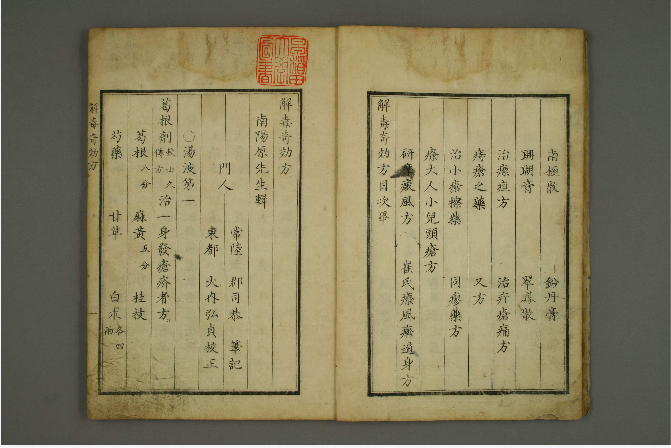 南極散　鉛丹膏
珊瑚膏　翠雲散
治瘡疽方　治疔瘡痛方
痔瘡之藥　又方
治小瘡擦藥　同療藥方
療大人小兒頭瘡方
療風方　崔氏療風遍身方
解毒奇効方目次畢
解毒奇効方
南陽原先生輯
門人　常陸　郡司恭　筆記
東都　大冉弘貞校正
○湯液第一
葛根劑 治一身發瘡癬者方
葛根八分　麻黄五分　桂枝
芍藥　甘草　白朮各四
解毒奇効方
一